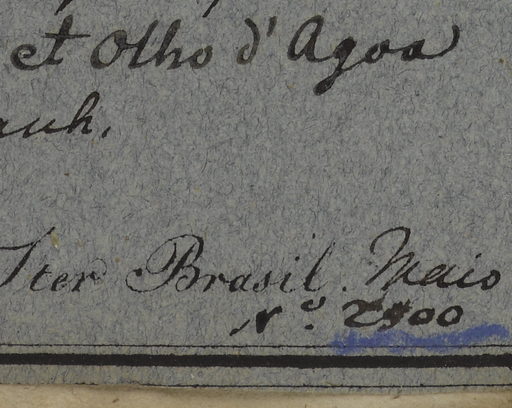 et Olho d'Agoa
auh.
Iter Brasil. Maio
Nº. 2500